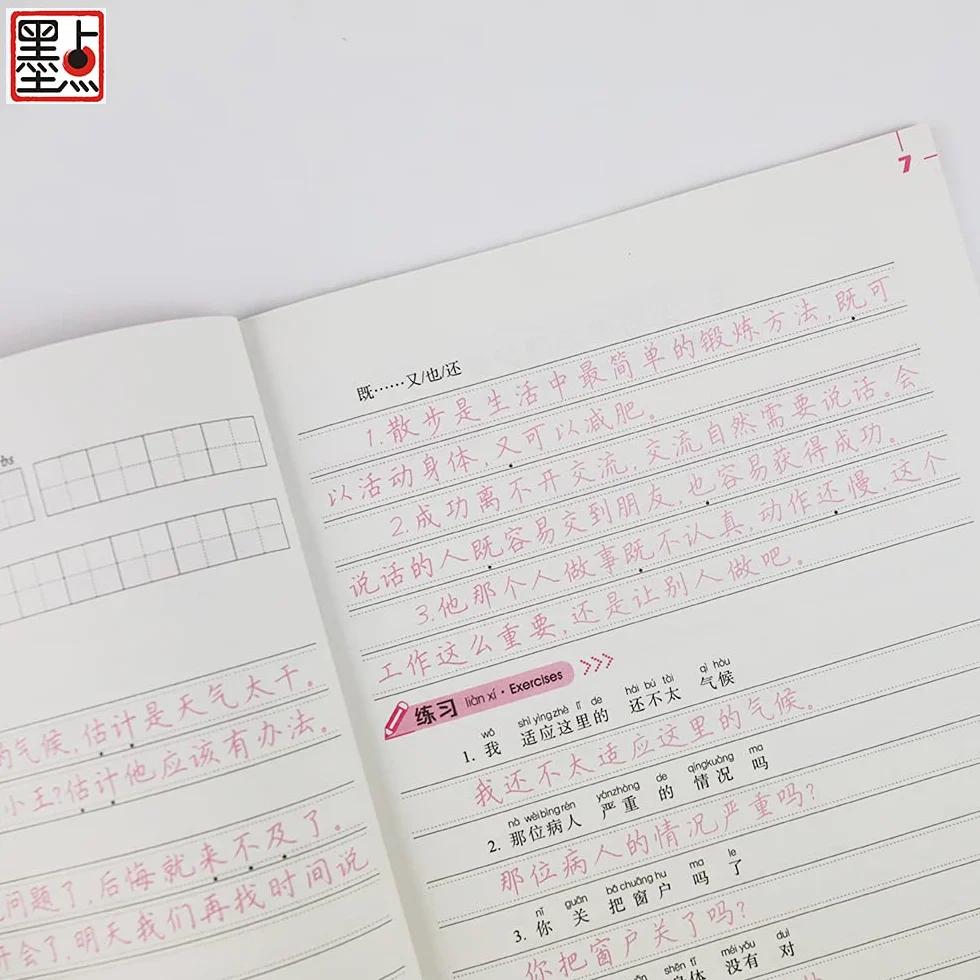 墨点
的气候,估计是天气太干。
小王?估计他应该有办法。
问题了,后悔就来不及了。
开会了,明天我们再找时间说
7
既……又/也/还
1.散步是生活中最简单的锻炼方法,既可
以活动身体,又可以减肥。
2.成功离不开交流,交流自然需要说话。会
说话的人既容易交到朋友,也容易获得成功。
3.他那个人做事既不认真,动作还慢,这个
工作这么重要,还是让别人做吧。
练习 liàn xí · Exercises
wǒ shì yìng zhè lǐ de hái bú tài qì hòu
1. 我 适应这里的 还不太 气候
我还不太适应这里的气候。
nà wèi bìng rén yánzhòng de qíngkuàng ma
2. 那位病人 严重 的 情况 吗
那位病人的情况严重吗?
nǐ guān bǎ chuāng hu ma le
3. 你 关 把 窗户 吗 了
你把窗户关了吗?
shēn tǐ méi yǒu duì
身体 没有 对